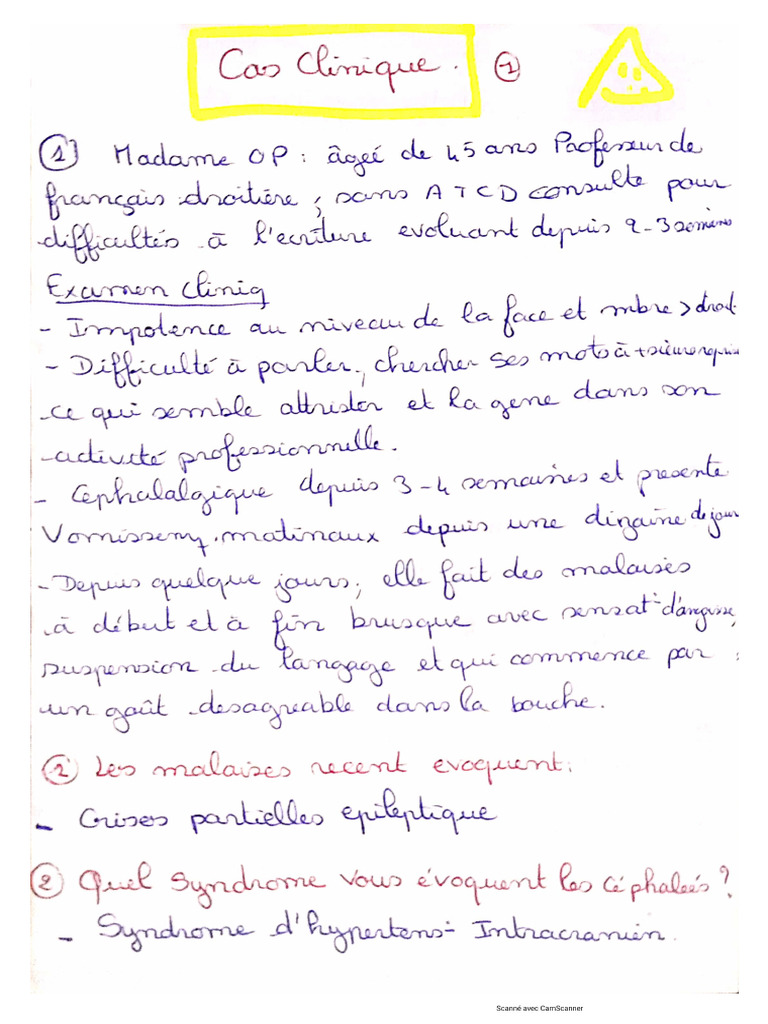 Cas Clinique. ①
① Madame OP : âgée de 45 ans Professeur de
français droitière, sans ATCD consulte pour
difficultés à l'ecriture evoluant depuis 2-3 semaines
Examen Cliniq
- Impotence au niveau de la face et mbre > droit.
- Difficulté à parler, chercher ses mots à +sieurs reprises
ce qui semble attrister et la gene dans son
activité professionnelle.
- Cephalalgique depuis 3-4 semaines et presente
Vomissem, matinaux depuis une dizaine de jour
- Depuis quelque jours, elle fait des malaises
à début et à fin brusque avec sensat° d'angoisse,
suspension du langage et qui commence par :
un goût desagreable dans la bouche.
① Les malaises recent evoquent:
- Crises partielles epileptique
② Quel Syndrome vous évoquent les céphaleés ?
- Syndrome d'hypertens° Intracranien.
Scanné avec CamScanner